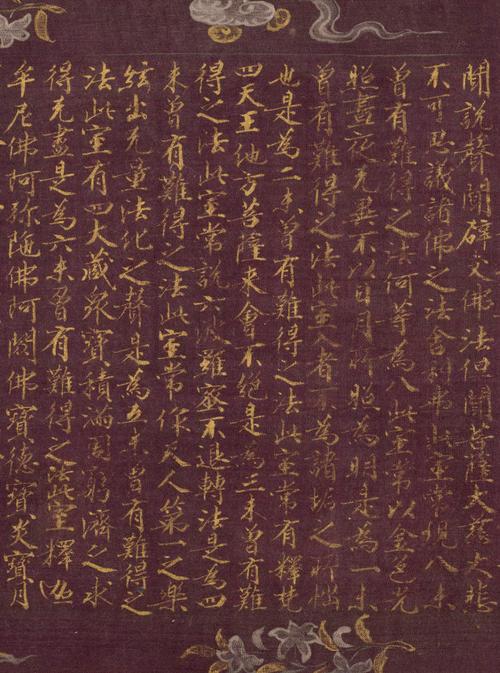 聞說聲聞辟支佛法但聞菩薩大慈大悲
不可思議諸佛之法舍利弗此室常現八未
曾有難得之法何等為八此室常以金色光
照晝夜无異不以日月所照為明是為一未
曾有難得之法此室入者不為諸垢之所惱
也是為二未曾有難得之法此室常有釋梵
四天王他方菩薩來會不絕是為三未曾有難
得之法此室常說六波羅蜜不退轉法是為四
未曾有難得之法此室常作天人第一之樂
絃出无量法化之聲是為五未曾有難得之
法此室有四大藏眾寶積滿周窮濟乏求
得无盡是為六未曾有難得之法此室釋迦
牟尼佛阿弥陁佛阿閦佛寶德寶炎寶月